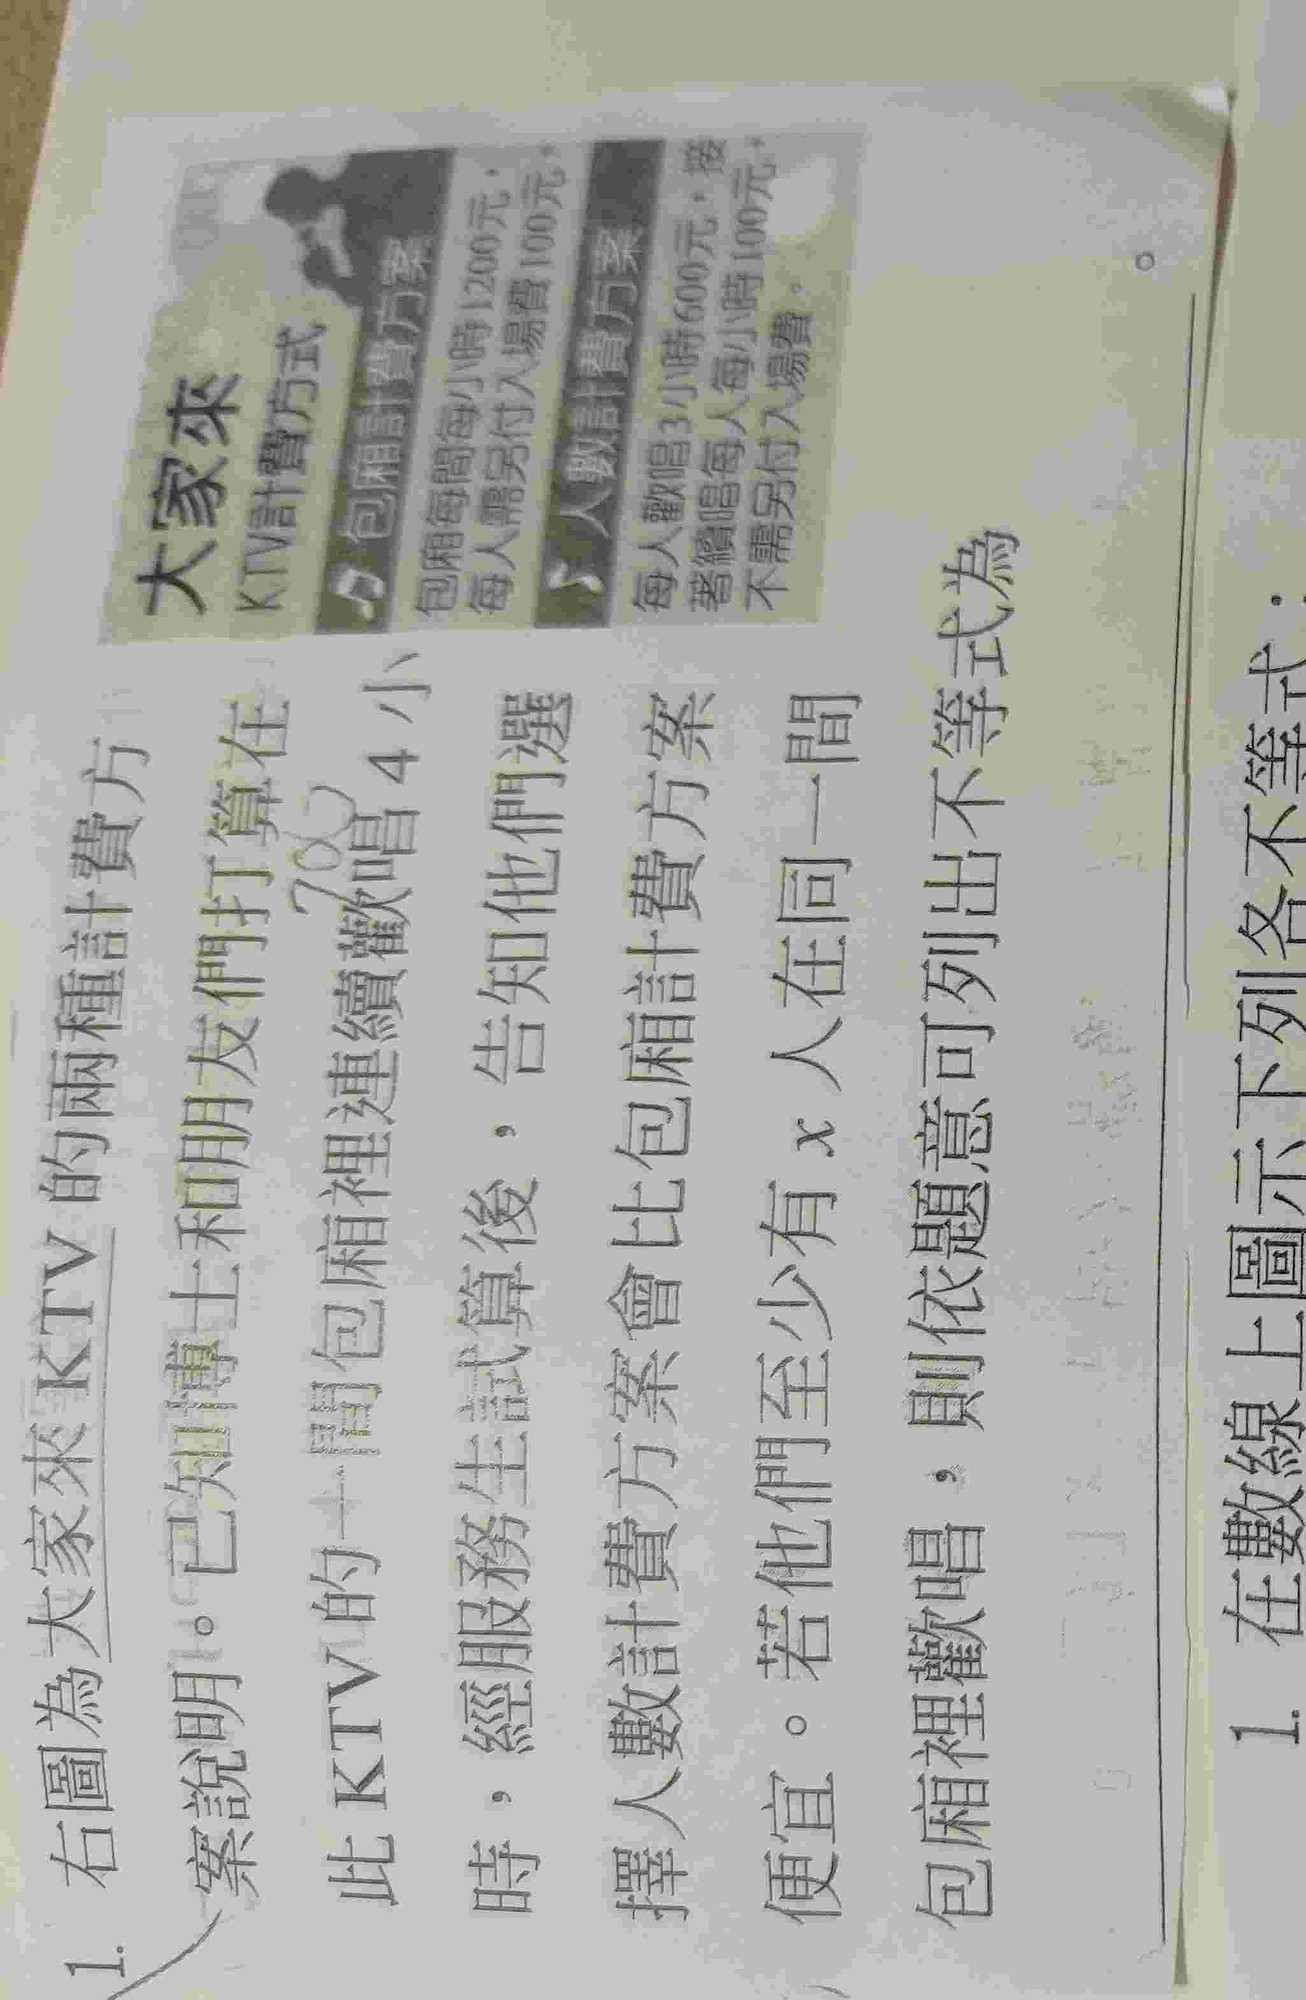 1. 右圖為大家來 KTV 的兩種計費方
案說明。已知博士和朋友們打算在
700
此 KTV 的一間包廂裡連續歡唱 4 小
時，經服務生試算後，告知他們選
擇人數計費方案會比包廂計費方案
便宜。若他們至少有 x 人在同一間
包廂裡歡唱，則依題意可列出不等式為
。
大家來
KTV計費方式
包廂計費方案
包廂每間每小時1200元，
每人需另付入場費100元。
人數計費方案
每人歡唱3小時600元，接
著續唱每人每小時100元，
不需另付入場費。
1. 在數線上圖示下列各不等式：